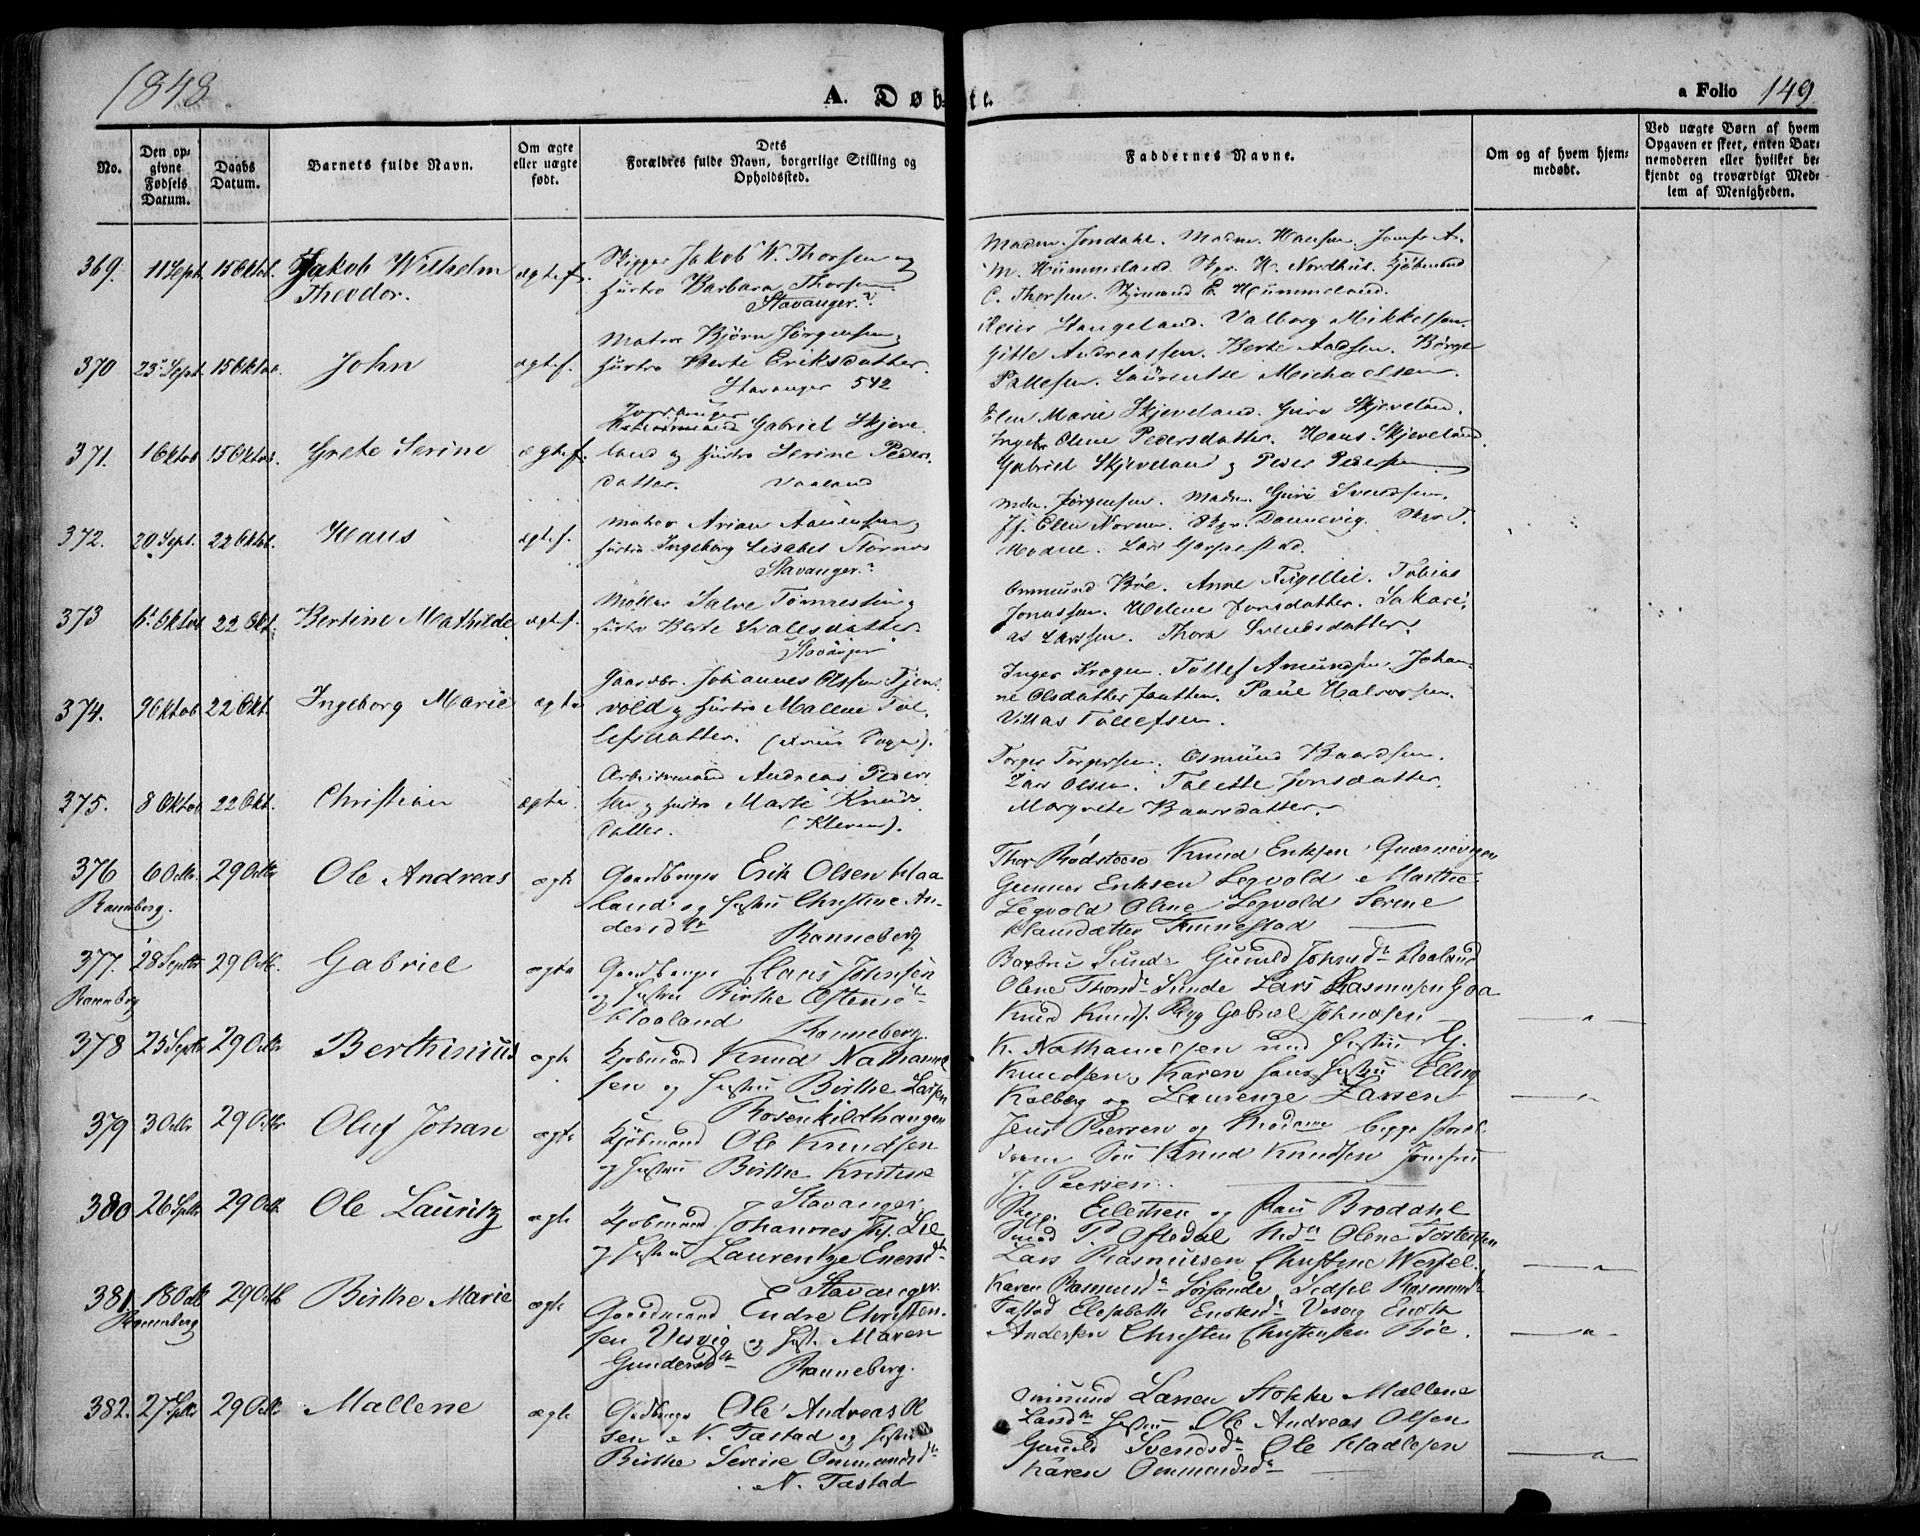 1848
A. Døbte.
a Folio 149
No.
Den op-
givne
Fødsels
Datum.
Daabs
Datum.
Barnets fulde Navn.
Om ægte
eller uægte
født.
Dets
Forældres fulde Navn, borgerlige Stilling og
Opholdssted.
Faddernes Navne.
Om og af hvem hjem-
medøbt.
Ved uægte Børn af hvem
Opgaven er skeet, enten Bar-
nemoderen eller hvilket be-
kjendt og troværdigt Med-
lem af Menigheden.
369. 11 Sept. 15 Oktob. Jakob Wilhelm
Theodor.
ægte f.
Skipper Jakob W. Thorsen og
Hustro Barbara Thorsen.
Stavanger.
Madm. Jondahl. Madm. Hansen. Jomfr. A.
M. Hummeland. Skpr. H. Nordhus. Kjøbmand
C. Thorsen. Styrmand E. Hummeland.
370 23 Sept. 15 Oktob. John
ægte f.
Matros Bjørn Jørgensen og
Hustro Berte Eriksdatter.
Stavanger 542
Reier Stangeland. Valborg Mikkelsen.
Gitte Andreassen. Berte Aadsen. Børge
Pallesen. Laurentse Michaelsen.
371. 1 Oktob. 15 Oktob. Grete Serine
ægte f.
Gabriel Skjeve
land og Hustro Serine Peders
datter. Vaaland
Elen Marie Skjeveland. Guro Skjeveland.
Ingebr Olene Pedersdatter. Hans Skjeveland.
Gabriel Skjeveland og Peder Pedersen.
372. 20 Sept. 22 Oktob. Hans
ægte f.
Matros Arian Aanensen og
Hustro Ingeborg Lisabet Stornes
Stavanger.
Mdm. Jørgensen. Madm. Guri Svendsen.
Jf. Elen Norman. Skpr. Dannevig. Skpr T.
Modne. Lars Gorpestad.
373 6 Oktob. 22 Okt. Bertine Mathilde
ægte f.
Møller Salve Tønnessen og
Hustro Berte Svalesdatter
Stavanger
Ommund Bøe. Anne Tobias
Jonassen. Helene Jonsdatter. Sakari-
as Larssen. Thora Svendsdatter.
374. 9 Oktob 22 Okt. Ingeborg Marie
ægte
Gaardbr. Johannes Olsen Tjens
vold og Hustro Mallene Tol
lefsdatter.
Inger Krogen. Tollef Amundsen. Johan-
ne Olsdatter Jaatten. Paul Halvorsen.
Villas Tollefsen.
375. 8 Oktob. 22 Okt. Christian
ægte
Arbeidsmand Andreas Peder
sen og Hustro Marte Knuds
datter. (Kleven).
Torger Torgersen. Osmund Baardsen.
Lars Olsen. Tolette Jonsdatter.
Margrete Baarsdatter.
376 6 Octbr. 29 Octbr Ole Andreas
Ranneberg.
ægte
Gaardbruger Erik Olsen Haa
land og Hustru Christine An-
dersdtr Ranneberg
Thor Rødstoen Knud Eriksen Quernevigen
Gunner Eriksen Legvold Marthe
Legvold Oline Legvold Serine
Hansdatter Tennestad
377. 28 Septbr 29 Octb. Gabriel
Ranneberg
ægte
Gaardbruger Claus Johnsen
og Hustru Birthe Ostensdtr
Haaland Ranneberg.
Barbru Sunde Gunild Johnsdtr Haaland
Olene Thorsdtr Sunde Lars Rasmusen Goa
Knud Knuds. Rygg Gabriel Johnsen
378 25 Septbr 29 Octbr Berthinius
ægte
Kjøbmand Knud Nathaniel
sen og Hustru Birthe Larsen
Rosenkildhaugen
K. Nathanielsen med Hustru G.
Knudsen Karen hans Hustru Elling
Kolberg og Laurenze Larsen
379 3 Octbr 29 Octbr Oluf Johan
ægte
Kjøbmand Ole Knudsen
og Hustru Birthe Kristine
Stavanger
Jens Peersen og Madame begge
Søn Knud Knudsen Jomfru
J. Peersen
380 26 Septbr 29 Octb Ole Lauritz
ægte
Kjøbmand Johannes Lie
og Hustru Laurentze Enersdtr
Stavanger
Eilertsen og Frue Brodahl
Smed P. Oftedal Olene Torstensen
Lars Rasmussen Christine Wessel.
381 18 Octb 29 Octb Birthe Marie
Ranneberg
ægte
Gaardmand Endre Christen-
sen Visvig og Hust. Maren
Gundersdtr Ranneberg.
Karen Rasmusdtr Sørsunde, Sidsel Rasmusdtr
Tastad Elisabeth Eriksdtr Visvig Endre
Andersen Christen Christensen Bøe.
382. 27 Septbr 29 Octb. Mallene
ægte
Gardbruger Ole Andreas Ol
sen N. Tastad og Hustru
Birthe Serine Ommundsdtr
N. Tastad
Ommund Larsen Stokke Mallene
Larsdtr Hustru Ole Andreas Olsen
Gunild Svendsdtr Ole Hadlesen
Karen Ommundsdtr